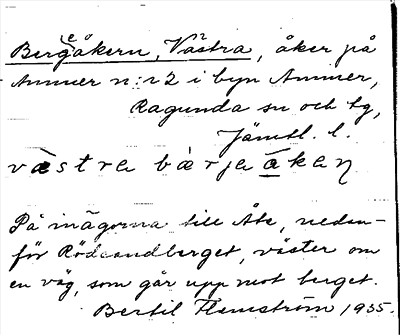 Bergeåkern, Västra, åker på
Ammer n:r 2 i byn Ammer,
Ragunda sn och tg,
Jämtl. l.
västra bàrjeàken
På inägorna till Åke, neden-
för Rödsandberget, väster om
en väg, som går upp mot berget.
Bertil Flemström 1935.